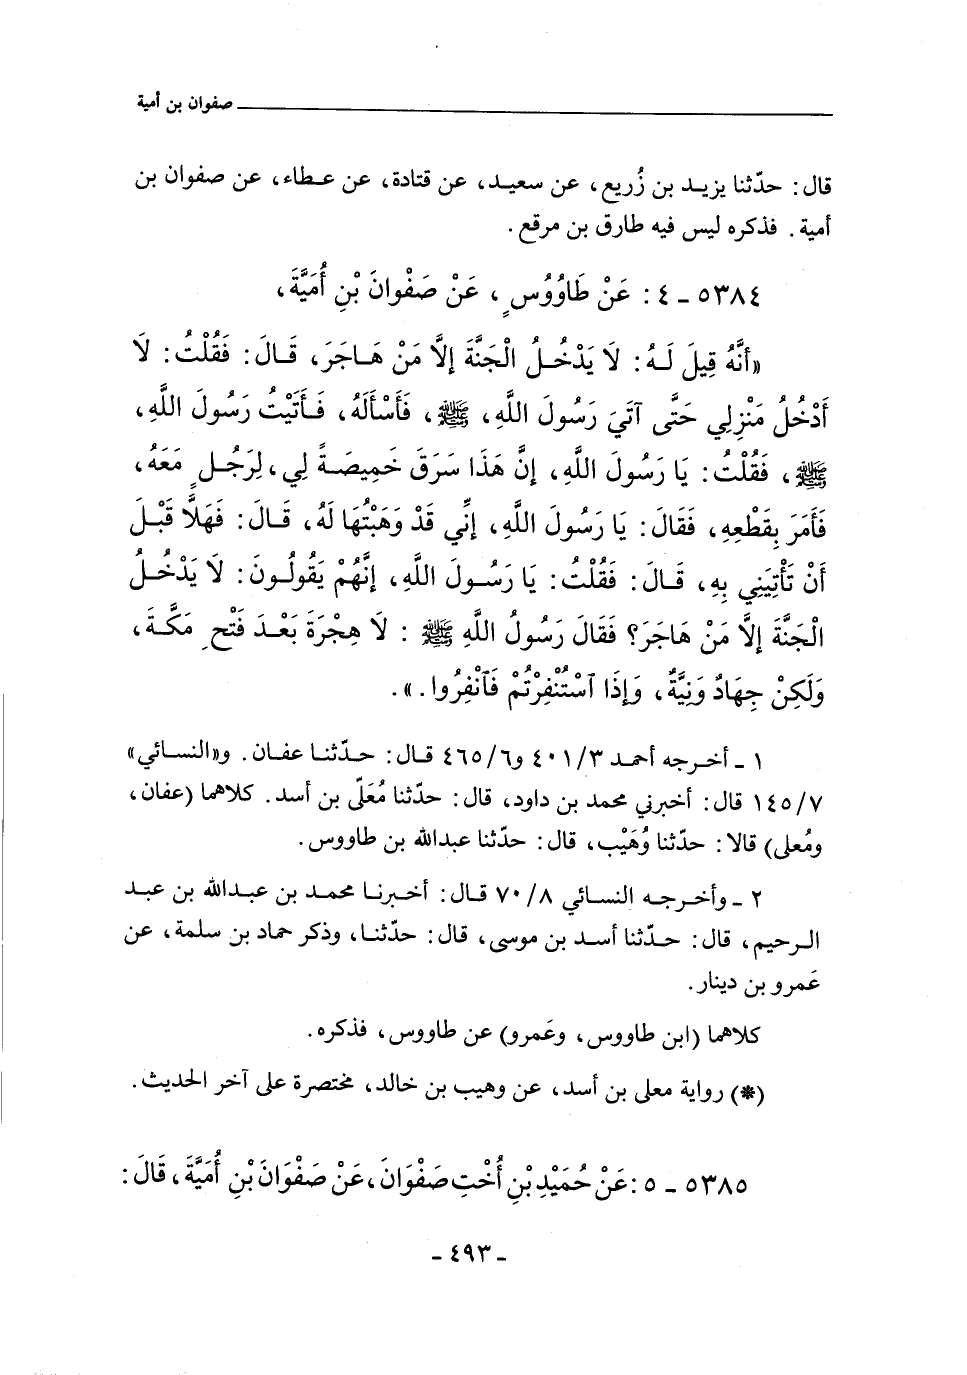 صفوان بن أمية
قال: حدّثنا يزيد بن زُريع، عن سعيد، عن قتادة، عن عطاء، عن صفوان بن
أمية. فذكره ليس فيه طارق بن مرقع.
٥٣٨٤ - ٤: عَنْ طَاوُوسٍ، عَنْ صَفْوانَ بْنِ أُمَيَّةَ،
«أنَّهُ قِيلَ لَهُ: لَا يَدْخُلُ الْجَنَّةَ إلَّا مَنْ هَاجَرَ، قَالَ: فَقُلْتُ: لَا
أَدْخُلُ مَنْزِلِي حَتَّى آتَيَ رَسُولَ اللَّهِ، ﷺ، فَأَسْأَلَهُ، فَأَتَيْتُ رَسُولَ اللَّهِ،
ﷺ، فَقُلْتُ: يَا رَسُولَ اللَّهِ، إنَّ هَذَا سَرَقَ خَمِيصَةً لِي، لِرَجُلٍ مَعَهُ،
فَأَمَرَ بِقَطْعِهِ، فَقَالَ: يَا رَسُولَ اللَّهِ، إنِّي قَدْ وَهَبْتُهَا لَهُ، قَالَ: فَهَلَّا قَبْلَ
أَنْ تَأْتِيَنِي بِهِ، قَالَ: فَقُلْتُ: يَا رَسُولَ اللَّهِ، إنَّهُمْ يَقُولُونَ: لَا يَدْخُلُ
الْجَنَّةَ إلَّا مَنْ هَاجَرَ؟ فَقَالَ رَسُولُ اللَّهِ ﷺ: لَا هِجْرَةَ بَعْدَ فَتْحِ مَكَّةَ،
وَلَكِنْ جِهَادٌ وَنِيَّةٌ، وَإذَا ٱسْتُنْفِرْتُمْ فَٱنْفِرُوا.».
١ - أخرجه أحمد ٤٠١/٣ و٤٦٥/٦ قال: حدّثنا عفان. و«النسائي»
١٤٥/٧ قال: أخبرني محمد بن داود، قال: حدّثنا مُعَلّى بن أسد. كلاهما (عفان،
ومُعلى) قالا: حدّثنا وُهَيْب، قال: حدّثنا عبدالله بن طاووس.
٢ - وأخرجه النسائي ٧٠/٨ قال: أخبرنا محمد بن عبدالله بن عبد
الرحيم، قال: حدّثنا أسد بن موسى، قال: حدّثنا، وذكر حماد بن سلمة، عن
عَمرو بن دينار.
كلاهما (ابن طاووس، وعَمرو) عن طاووس، فذكره.
(*) رواية معلى بن أسد، عن وهيب بن خالد، مختصرة على آخر الحديث.
٥٣٨٥ - ٥: عَنْ حُمَيْدِ بْنِ أُخْتِ صَفْوَانَ، عَنْ صَفْوَانَ بْنِ أُمَيَّةَ، قَالَ:
- ٤٩٣ -